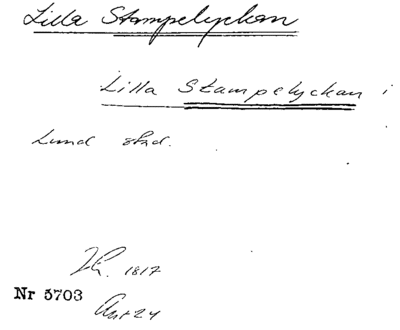 Lilla Stampelyckan
Lilla Stampelyckan i
Lund stad.
1817
Nr 5703